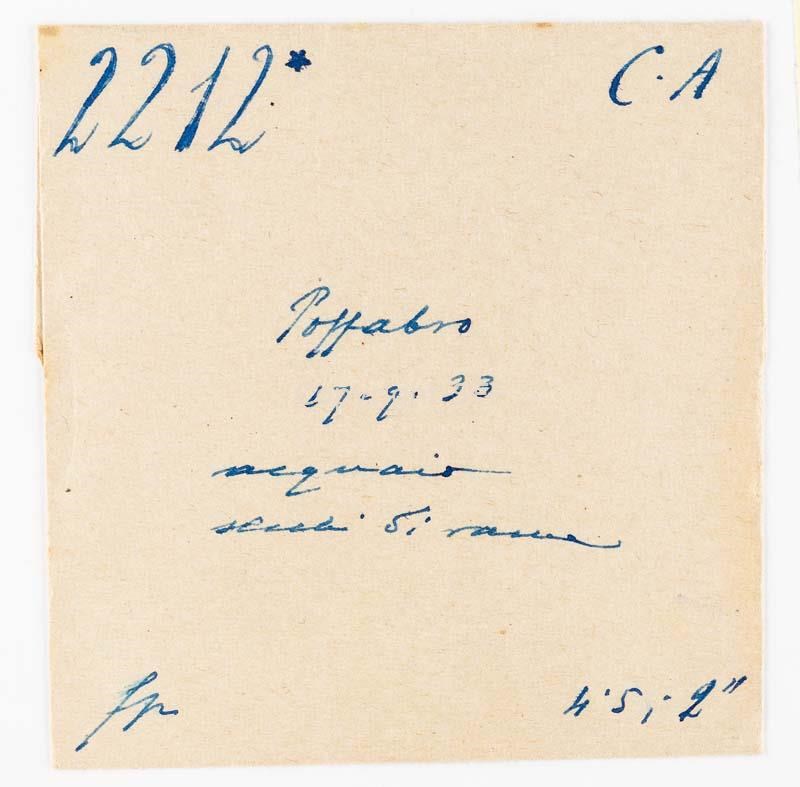 2212*
C·A
Poffabro
17-9-33
acquaio
secchi di rame
fp
4·5; 2"